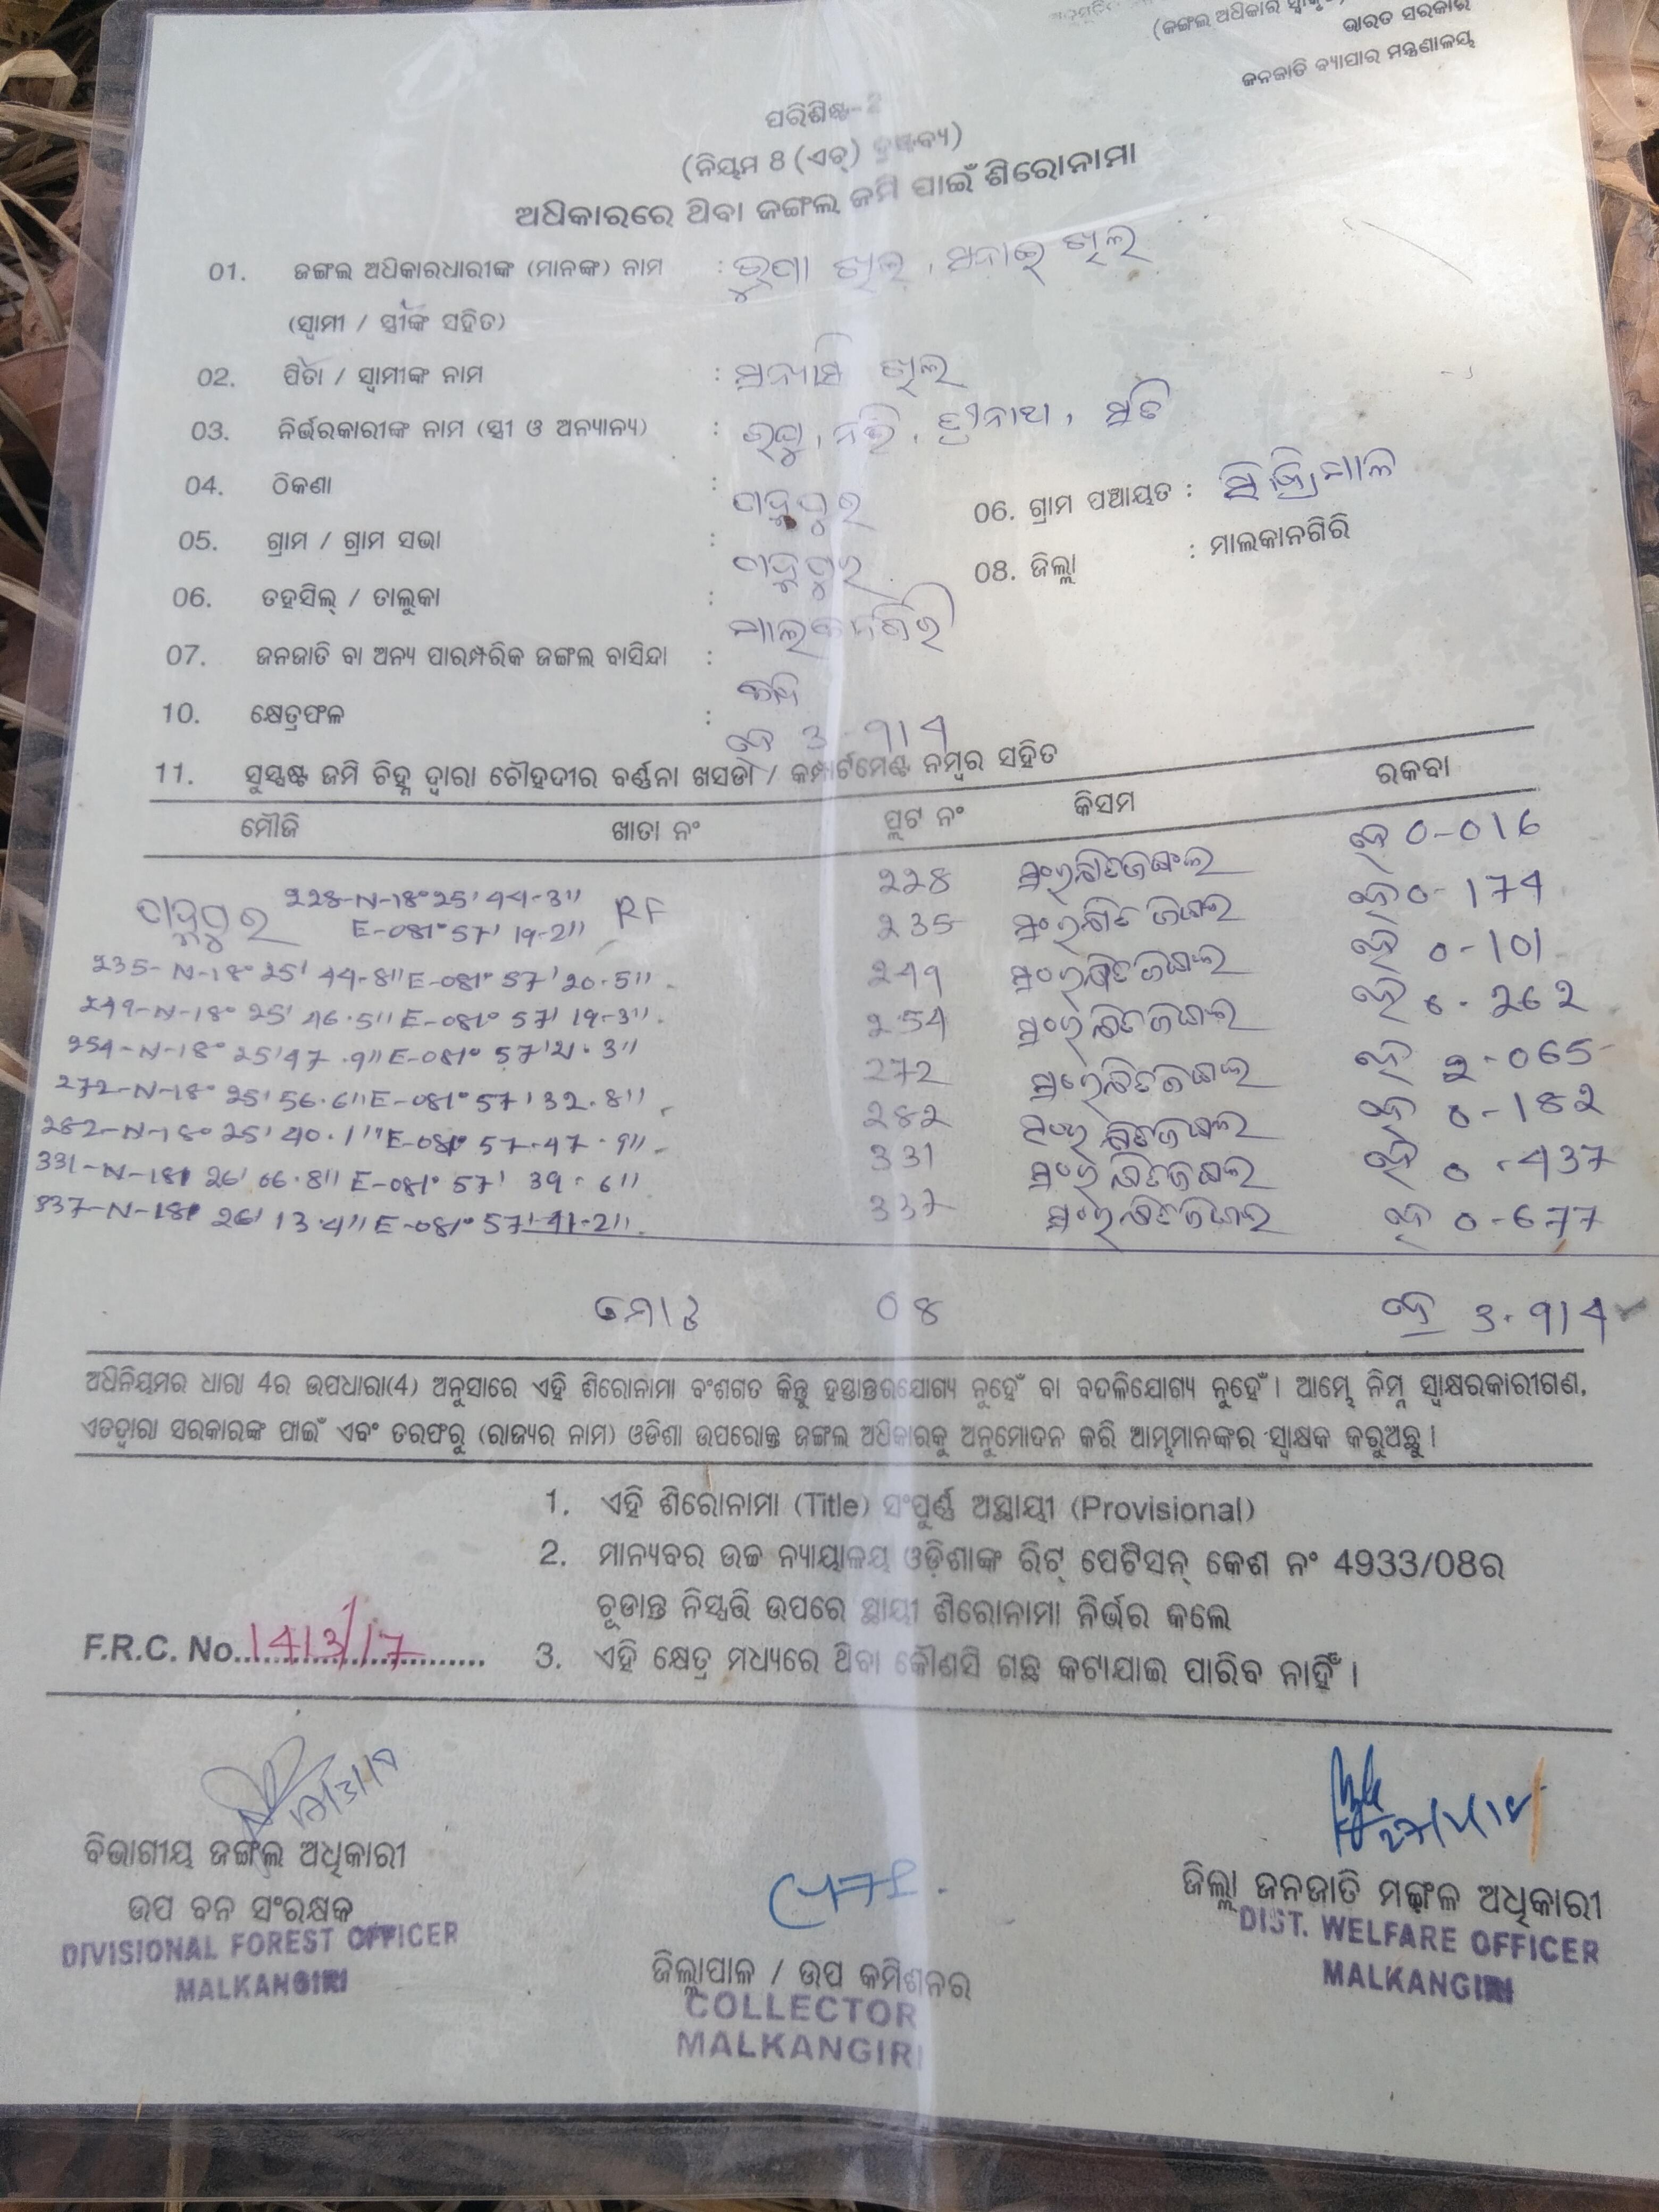 (ଜଙ୍ଗଲ ଅଧିକାର
ଭାରତ ସରକାର
ଜନଜାତି ବ୍ୟାପାର ମନ୍ତ୍ରଣାଳୟ
ପରିଶିଷ୍ଟ-2
(ନିୟମ 8 (ଏଚ୍) ଦ୍ରଷ୍ଟବ୍ୟ)
ଅଧିକାରରେ ଥିବା ଜଙ୍ଗଲ ଜମି ପାଇଁ ଶିରୋନାମା
01. ଜଙ୍ଗଲ ଅଧିକାରଧାରୀଙ୍କ (ମାନଙ୍କ) ନାମ :
(ସ୍ୱାମୀ / ସ୍ତ୍ରୀଙ୍କ ସହିତ)
02. ପିତା / ସ୍ୱାମୀଙ୍କ ନାମ :
03. ନିର୍ଭରକାରୀଙ୍କ ନାମ (ସ୍ତ୍ରୀ ଓ ଅନ୍ୟାନ୍ୟ) :
04. ଠିକଣା : ପଦ୍ମପୁର 06. ଗ୍ରାମ ପଞ୍ଚାୟତ :
05. ଗ୍ରାମ / ଗ୍ରାମ ସଭା : ପଦ୍ମପୁର 08. ଜିଲ୍ଲା : ମାଲକାନଗିରି
06. ତହସିଲ୍ / ତାଲୁକା : ମାଲକାନଗିରି
07. ଜନଜାତି ବା ଅନ୍ୟ ପାରମ୍ପରିକ ଜଙ୍ଗଲ ବାସିନ୍ଦା :
10. କ୍ଷେତ୍ରଫଳ : ହେ 3-914
11. ସୁସ୍ପଷ୍ଟ ଜମି ଚିହ୍ନ ଦ୍ୱାରା ଚୌହଦୀର ବର୍ଣ୍ଣନା ଖସଡା / କମ୍ପାର୍ଟମେଣ୍ଟ ନମ୍ବର ସହିତ
ମୌଜି ଖାତା ନଂ ପ୍ଲଟ ନଂ କିସମ ରକବା
ପଦ୍ମପୁର 228-N-18°25'44-3" RF 228 ସଂରକ୍ଷିତ ଜଙ୍ଗଲ ହେ 0-016
E-081°57' 19-2" 235 ସଂରକ୍ଷିତ ଜଙ୍ଗଲ ହେ 0-174
235-N-18° 25' 44-8" E-081° 57' 20.5" 249 ସଂରକ୍ଷିତ ଜଙ୍ଗଲ ହେ 0-101
249-N-18° 25' 46.5" E-081° 57' 19-3" 254 ସଂରକ୍ଷିତ ଜଙ୍ଗଲ ହେ 0.262
254-N-18° 25' 47.9" E-081° 57' 21.3" 272 ସଂରକ୍ଷିତ ଜଙ୍ଗଲ ହେ 2-065
272-N-18° 25' 56.6" E-081° 57' 32.8" 282 ସଂରକ୍ଷିତ ଜଙ୍ଗଲ ହେ 0-182
282-N-18° 25' 40.1" E-081° 57-47.9" 331 ସଂରକ୍ଷିତ ଜଙ୍ଗଲ ହେ 0-437
331-N-18° 26' 06.8" E-081° 57' 39.6" 337 ସଂରକ୍ଷିତ ଜଙ୍ଗଲ ହେ 0-677
337-N-18° 26' 13.4" E-081° 57' 41-2"
ମୋଟ 08 ହେ 3.914
ଅଧିନିୟମର ଧାରା 4ର ଉପଧାରା(4) ଅନୁସାରେ ଏହି ଶିରୋନାମା ବଂଶଗତ କିନ୍ତୁ ହସ୍ତାନ୍ତରଯୋଗ୍ୟ ନୁହେଁ ବା ବଦଳିଯୋଗ୍ୟ ନୁହେଁ। ଆମ୍ଭେ ନିମ୍ନ ସ୍ୱାକ୍ଷରକାରୀଗଣ,
ଏତଦ୍ୱାରା ସରକାରଙ୍କ ପାଇଁ ଏବଂ ତରଫରୁ (ରାଜ୍ୟର ନାମ) ଓଡିଶା ଉପରୋକ୍ତ ଜଙ୍ଗଲ ଅଧିକାରକୁ ଅନୁମୋଦନ କରି ଆମ୍ଭମାନଙ୍କର ସ୍ୱାକ୍ଷକ କରୁଅଛୁ।
1. ଏହି ଶିରୋନାମା (Title) ସଂପୂର୍ଣ୍ଣ ଅସ୍ଥାୟୀ (Provisional)
2. ମାନ୍ୟବର ଉଚ୍ଚ ନ୍ୟାୟାଳୟ ଓଡ଼ିଶାଙ୍କ ରିଟ୍ ପେଟିସନ୍ କେଶ ନଂ 4933/08ର
ଚୂଡାନ୍ତ ନିସ୍ପତ୍ତି ଉପରେ ସ୍ଥାୟୀ ଶିରୋନାମା ନିର୍ଭର କଲେ
F.R.C. No. 1413/17 3. ଏହି କ୍ଷେତ୍ର ମଧ୍ୟରେ ଥିବା କୌଣସି ଗଛ କଟାଯାଇ ପାରିବ ନାହିଁ।
ବିଭାଗୀୟ ଜଙ୍ଗଲ ଅଧିକାରୀ
ଉପ ବନ ସଂରକ୍ଷକ
DIVISIONAL FOREST OFFICER
MALKANGIRI
ଜିଲ୍ଲାପାଳ / ଉପ କମିଶନର
COLLECTOR
MALKANGIRI
ଜିଲ୍ଲା ଜନଜାତି ମଙ୍ଗଳ ଅଧିକାରୀ
DIST. WELFARE OFFICER
MALKANGIRI